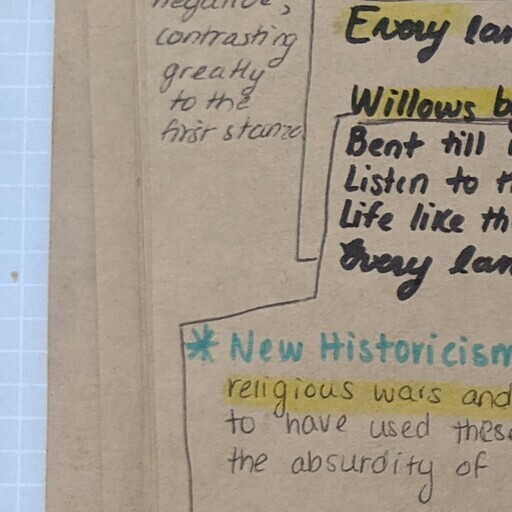 negative,
contrasting
greatly
to the
first stanza
Every lan
Willows b
Bent till
Listen to th
Life like th
Every lan
* New Historicism
religious wars and
to have used these
the absurdity of